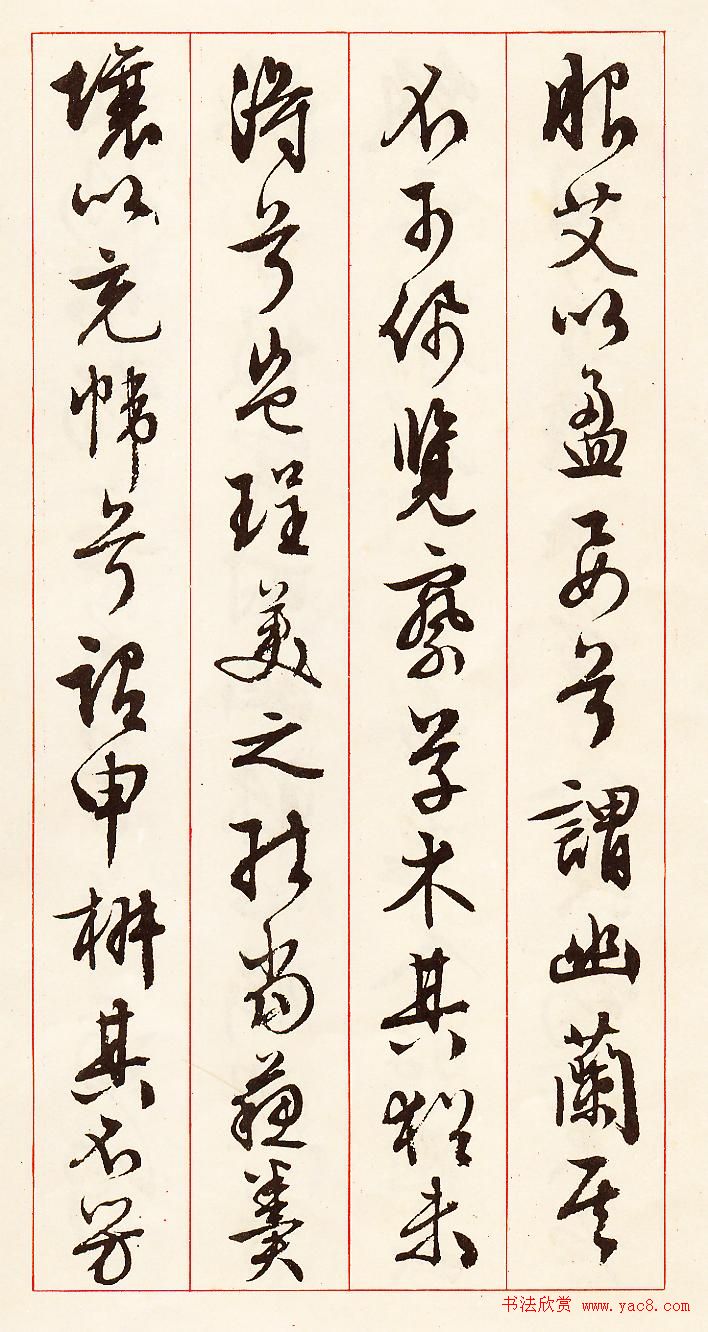 服艾以盈要兮謂幽蘭其
不可佩覽察草木其猶未
得兮豈珵美之能當蘇糞
壤以充幃兮謂申椒其不芳
书法欣赏 www.yac8.com